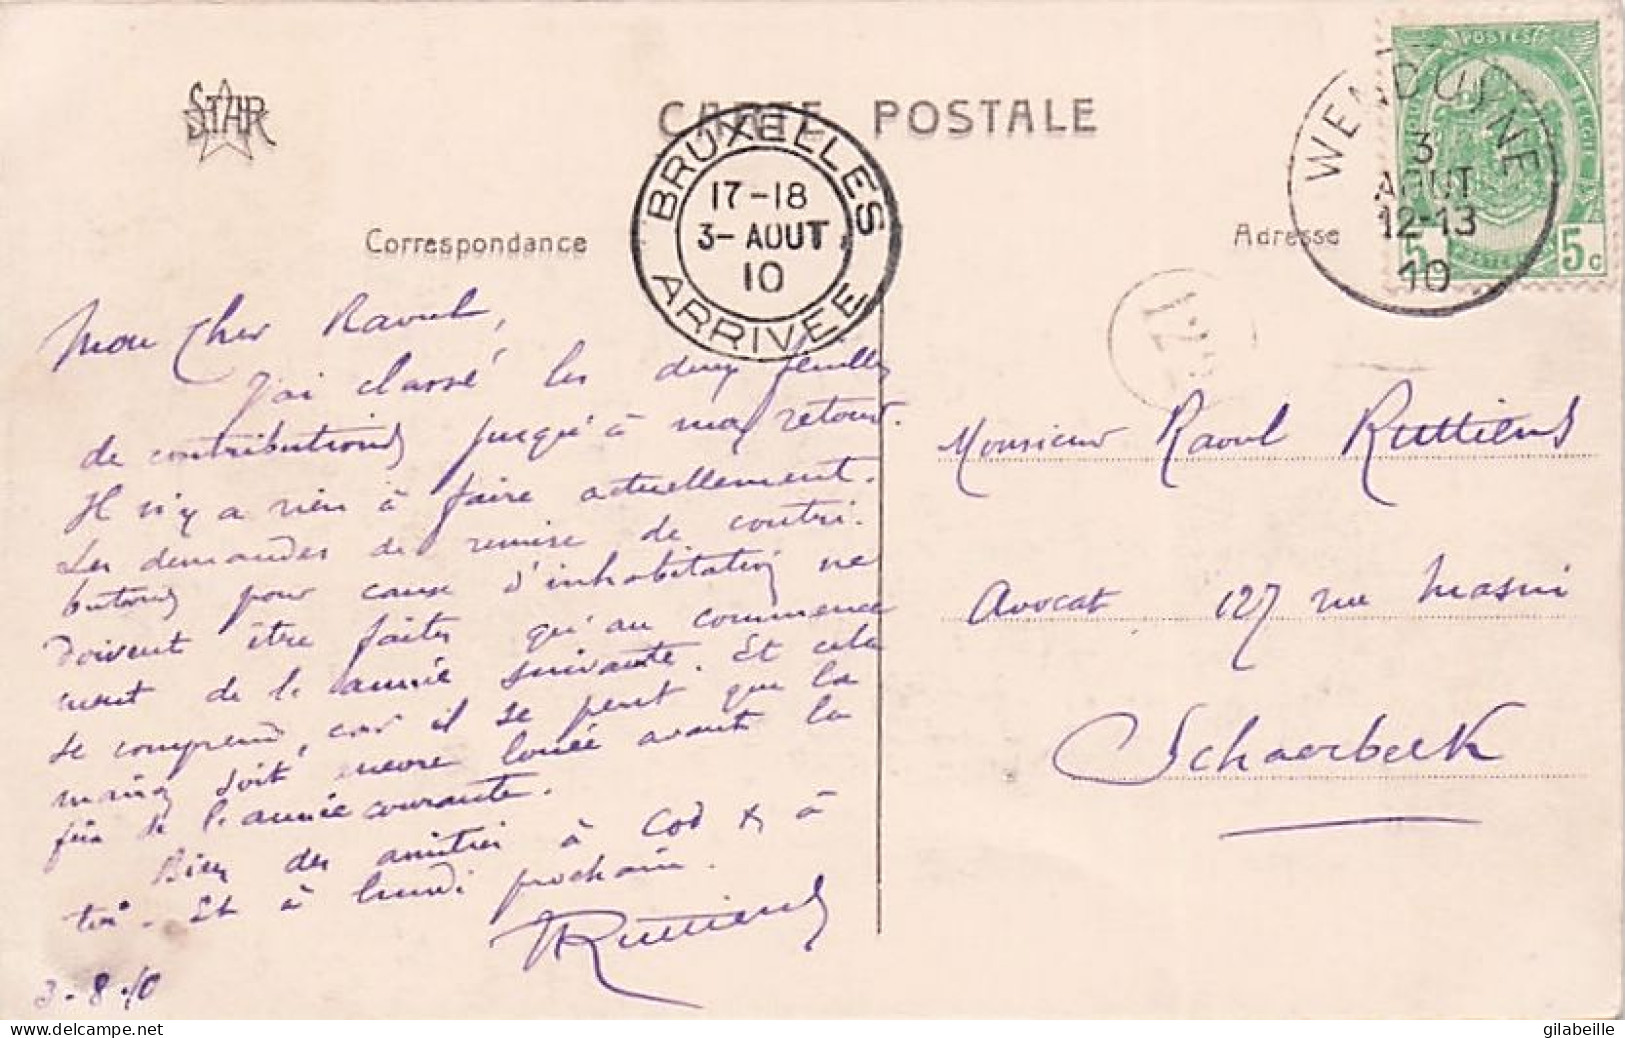 STAR
CARTE POSTALE
BRUXELLES
17-18
3-AOUT
10
ARRIVEE
WENDUYNE
3
AOUT
12-13
10
POSTES
BELGIE
5 5c
Correspondance
Adresse
Mon Cher Raoul,
J'ai classé les deux feuilles
de contributions jusqu'à mon retour.
Il n'y a rien à faire actuellement.
Les demandes de remise de contri-
butions pour cause d'inhabitation ne
doivent être faites qu'au commence
ment de l'année suivante. Et cela
se comprend, car il se peut que la
maison soit encore louée avant la
fin de l'année courante.
Bien des amitiés à à
toi - Et à lundi prochain.
Ruttiens
3-8-10
Monsieur Raoul Ruttiens
Avocat 127 rue Masui
Schaerbeek
gilabeille
www.delcampe.net